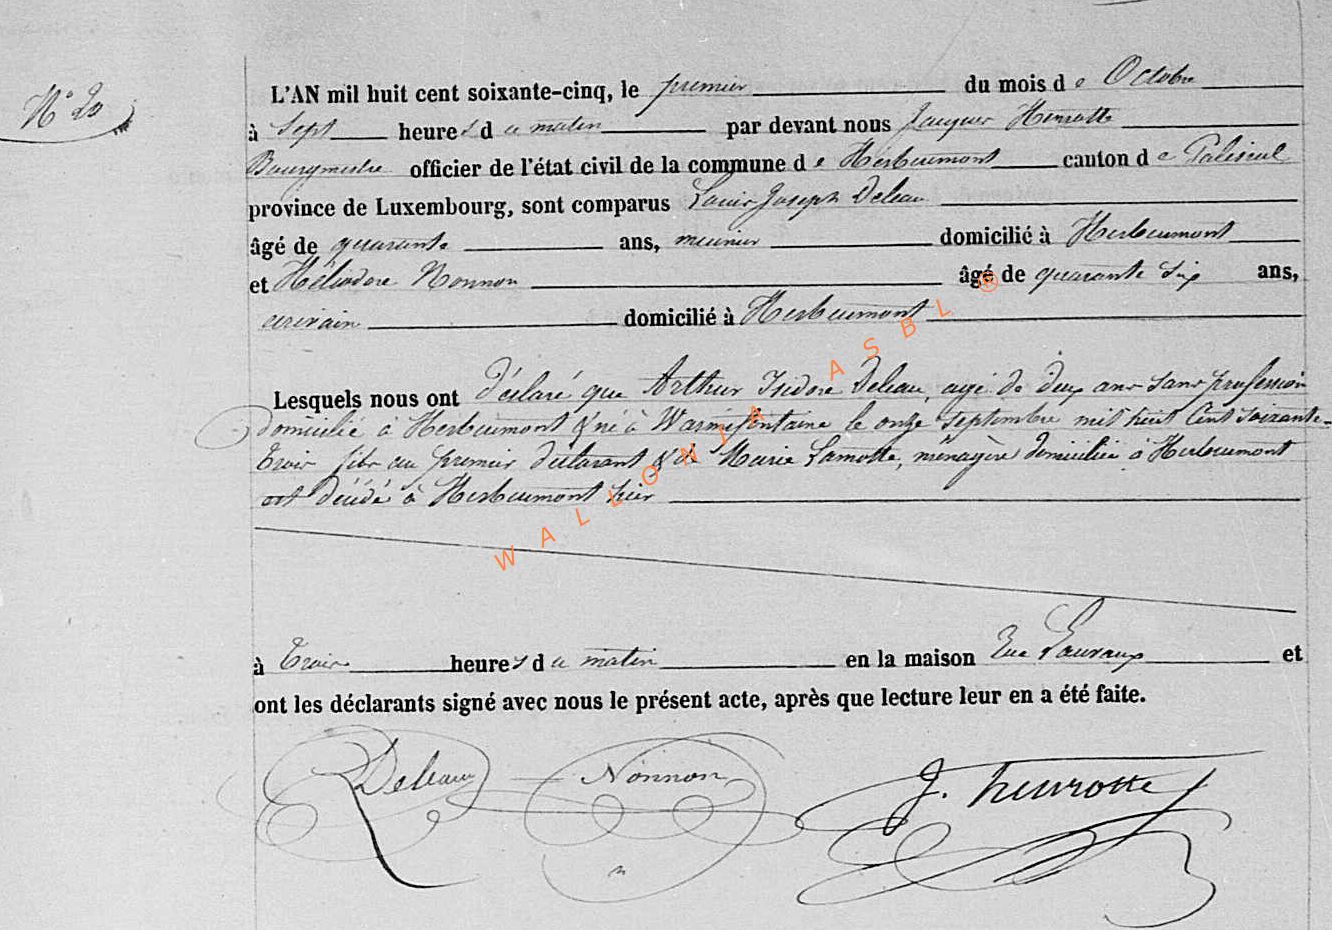 N° 20
L'AN mil huit cent soixante-cinq, le premier du mois d e Octobre
à Sept heures d u matin par devant nous Jacques Henrotte
Bourgmestre officier de l'état civil de la commune d e Herbeumont canton d e Paliseul
province de Luxembourg, sont comparus Louis Joseph Deleau
âgé de quarante ans, meunier domicilié à Herbeumont
et Héliodore Nonnon âgé de quarante six ans,
écrivain domicilié à Herbeumont
Lesquels nous ont déclaré que Arthur Isidore Deleau, agé de deux ans sans profession
domicilié à Herbeumont & né à Warmifontaine le onze Septembre mil huit Cent Soixante-
trois fils du premier déclarant & de Marie Lamotte, ménagère domiciliée à Herbeumont
est décédé à Herbeumont hier
à trois heures d u matin en la maison Rue et
ont les déclarants signé avec nous le présent acte, après que lecture leur en a été faite.
Deleau Nonnon J. henrotte
WALLONIA ASBL ®